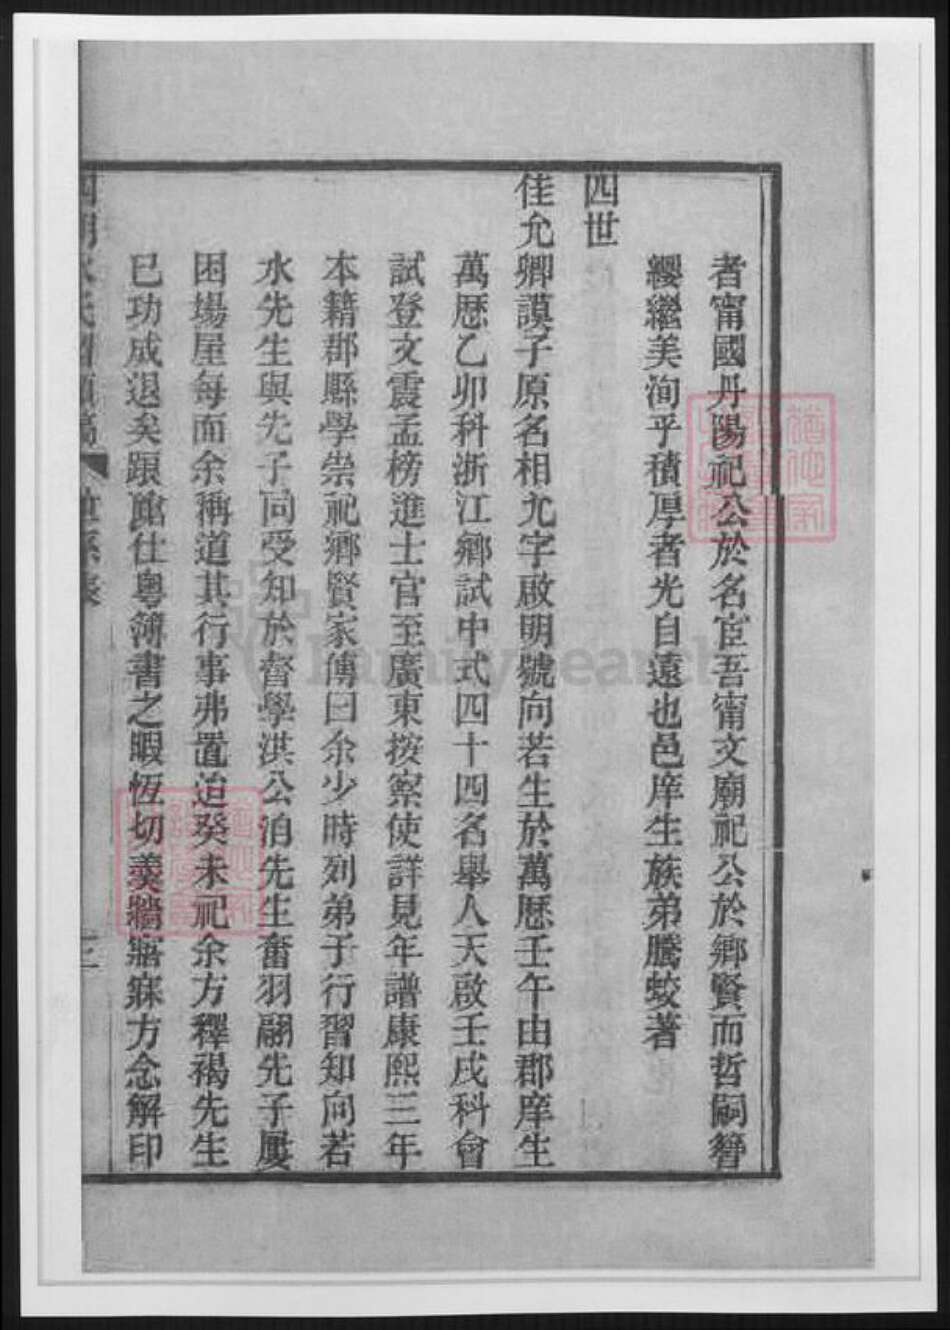 者甯國丹陽祀公於名宦吾甯文廟祀公於鄉賢而哲嗣簪
纓繼美洵乎積厚者光自遠也邑庠生族弟騰蛟著
四世
佳允卿謨子原名相允字啟明號向若生於萬厯壬午由郡庠生
萬厯乙卯科浙江鄉試中式四十四名舉人天啟壬戌科會
試登文震孟榜進士官至廣東按察使詳見年譜康熙三年
本籍郡縣學崇祀鄉賢家傳曰余少時列弟子行習知向若
水先生與先子同受知於督學洪公洎先生奮羽翮先子屢
困場屋每面余稱道其行事弗置迨癸未祀余方釋褐先生
已功成退矣踉䠀仕粵簿書之暇恆切羹牆寤寐方念解印
四明水氏留碩稿 世系表 三